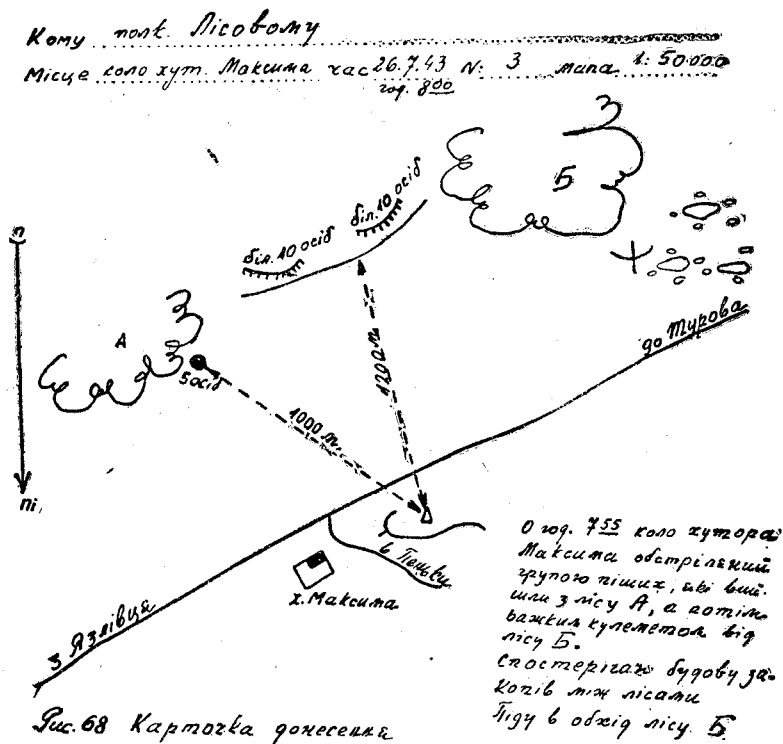 Кому полк. Лісовому
Місце коло хут. Максима час 26.7.43 N: 3 мапа 1: 50.000
год. 8 00
біл. 10 осіб
біл. 10 осіб
Б
п
А
5 осіб
1200 м
до Турова
1000 м.
пі,
О год. 7 55 коло хутора
Максима обстріляний
групою піших, які вий-
шли з лісу А, а потім
важким кулеметом від
лісу Б.
Спостерігаю будову за-
копів між лісами
Піду в обхід лісу Б
х. Максима
з Язлівця
Рис. 68 Карточка донесення